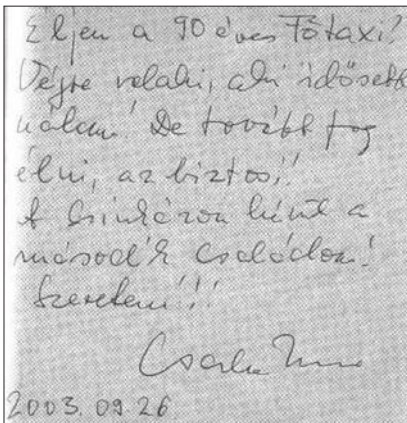 Éljen a 90 éves Főtaxi!
Végre valaki, aki idősebb
nálam! De tovább fog
élni, az biztos!!
A színházon kívül a
második családom!
Szeretem!!!
2003. 09. 26